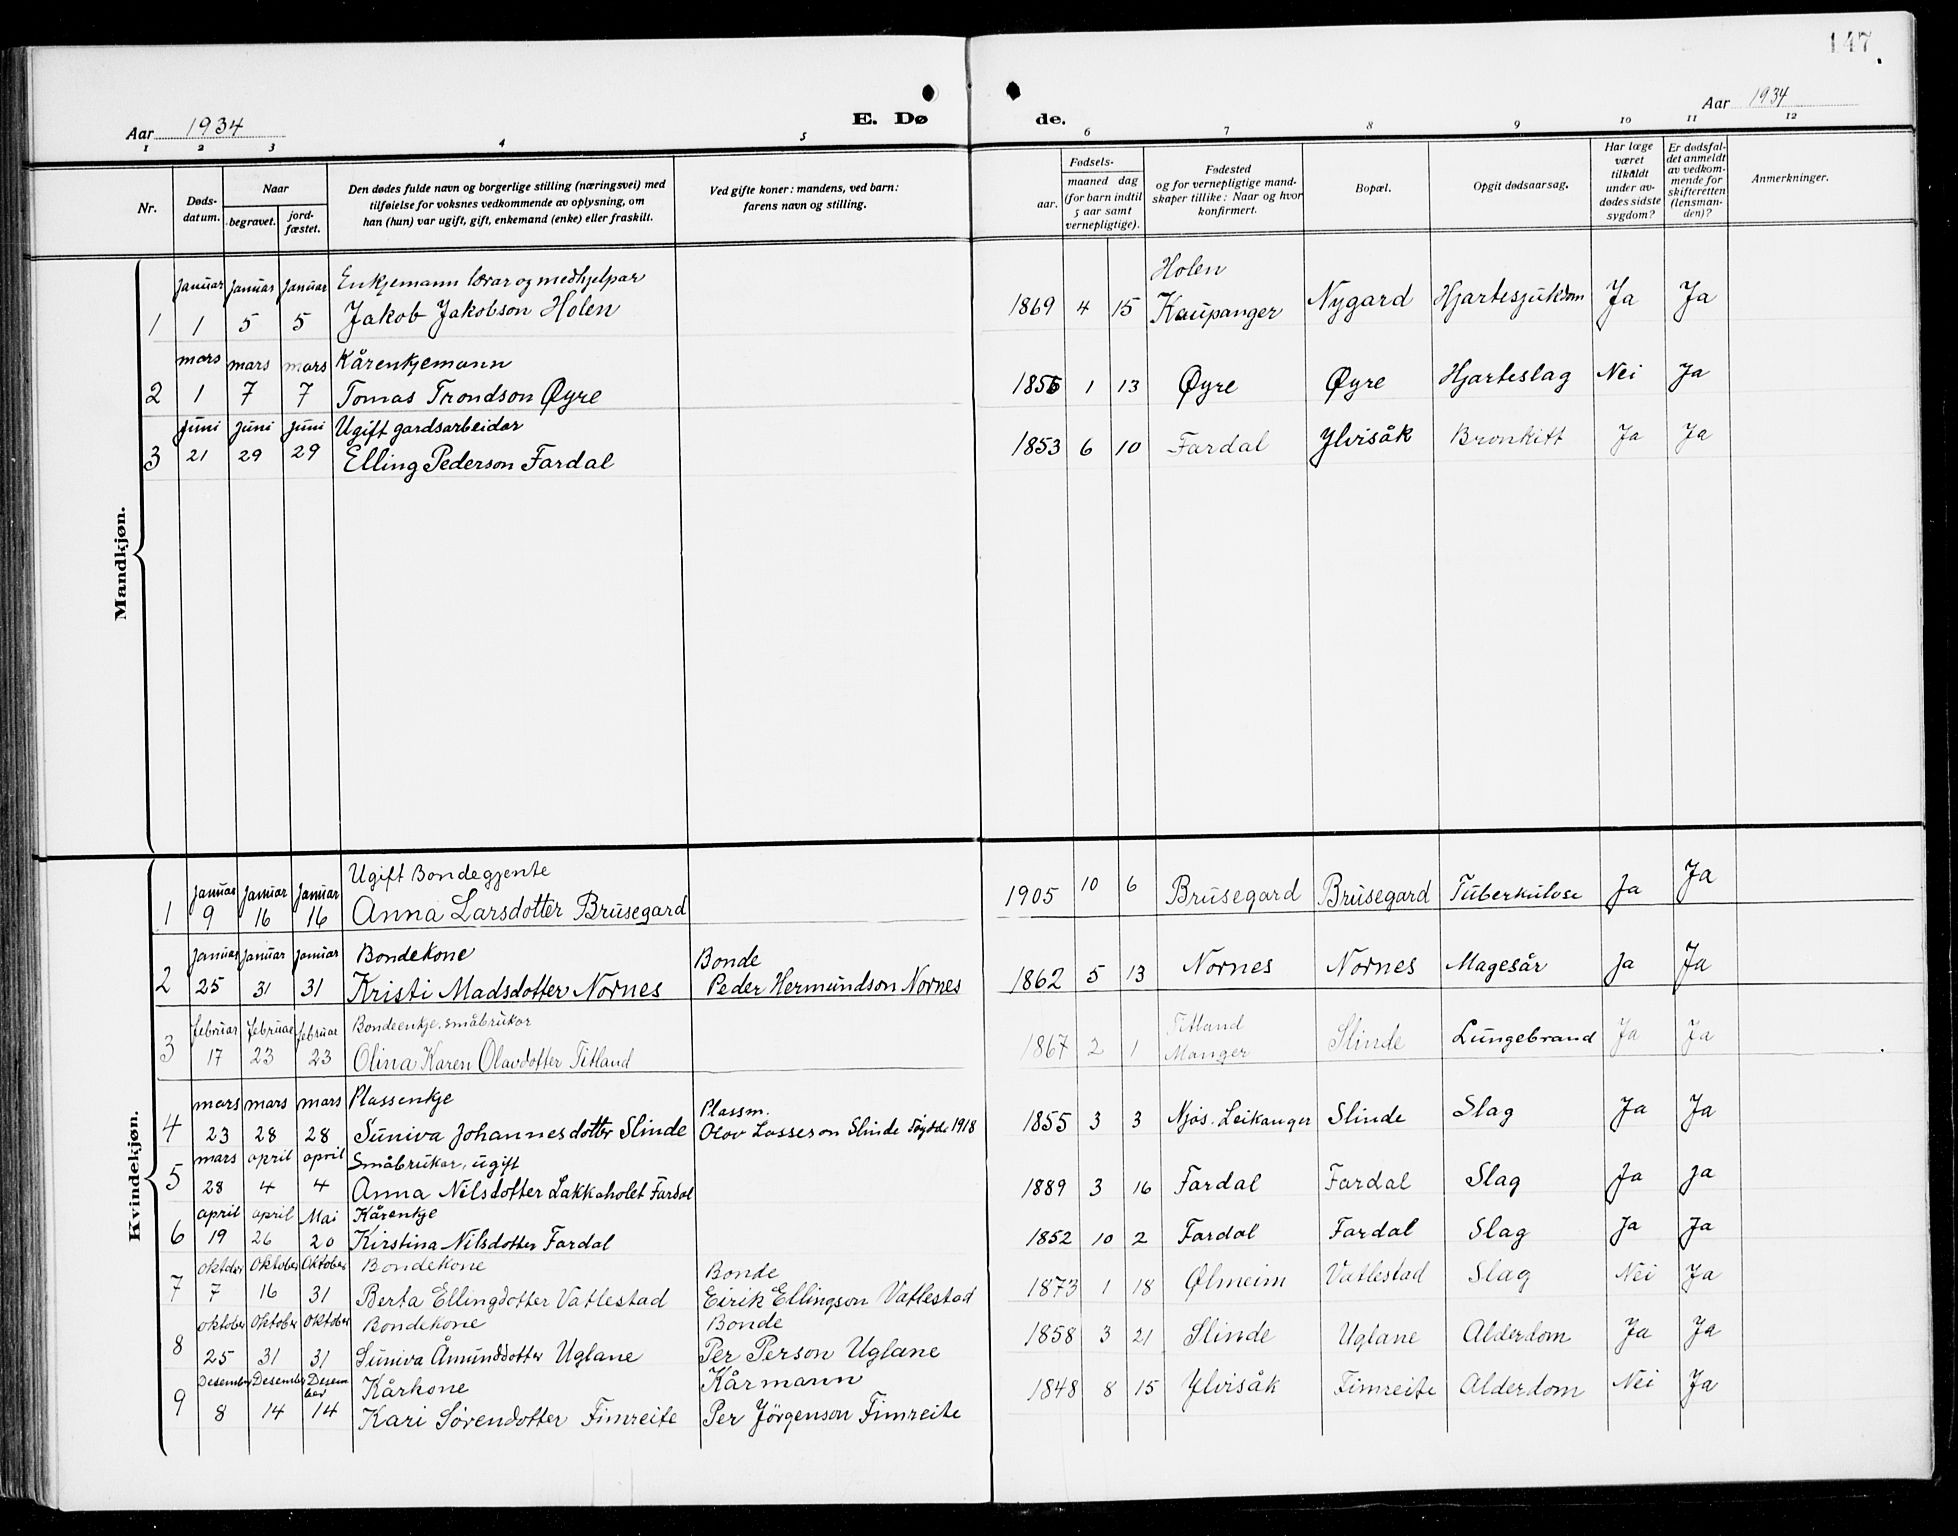 147
Aar 1934
E. Dø de.
Aar 1934
1 2 3 4 5 6 7 8 9 10 11 12
Nr.
Dødsdatum.
Naar
begravet.
jordfæstet.
Den dødes fulde navn og borgerlige stilling (næringsvei) med
tilføielse for voksnes vedkommende av oplysning, om
han (hun) var ugift, gift, enkemand (enke) eller fraskilt.
Ved gifte koner: mandens, ved barn:
farens navn og stilling.
Fødsels-
aar.
maaned dag
(for barn indtil
5 aar samt
vernepligtige).
Fødested
og for vernepligtige mand-
skaper tillike: Naar og hvor
konfirmert.
Bopæl.
Opgit dødsaarsag.
Har læge
været
tilkaldt
under av-
dødes sidste
sygdom?
Er dødsfal-
det anmeldt
av vedkom-
mende for
skifteretten
(lensman-
den)?
Anmerkninger.
Mandkjøn.
Januar Januar Januar Enkjemann lærar og medhjelpar Holen
1 1 5 5 Jakob Jakobson Holen 1869 4 15 Kaupanger Nygard Hjartesjukdom Ja Ja
mars mars mars Kårenkjemann
2 1 7 7 Tomas Trondson Øyre 1856 1 13 Øyre Øyre Hjarteslag Nei Ja
Juni Juni Juni Ugift gardsarbeidar
3 21 29 29 Elling Pederson Fardal 1853 6 10 Fardal Ylvisåk Bronkitt Ja Ja
Kvindekjøn.
Januar Januar Januar Ugift Bondegjente
1 9 16 16 Anna Larsdotter Brusegard 1905 10 6 Brusegard Brusegard Tuberkulose Ja Ja
Januar Januar Januar Bondekone Bonde
2 25 31 31 Kristi Madsdotter Nornes Peder Hermundson Nornes 1862 5 13 Nornes Nornes Magesår Ja Ja
februar februar februar Bondeenkje. småbrukar Titland
3 17 23 23 Olina Karen Olavdotter Titland 1867 2 1 Manger Slinde Lungebrand Ja Ja
mars mars mars Plassenkje Plassm.
4 23 28 28 Suniva Johannesdotter Slinde Olav Lasseson Slinde 1918 1855 3 3 Njøs. Leikanger Slinde Slag Ja Ja
mars april april Småbrukar, ugift
5 28 4 4 Anna Nilsdotter Lakkaholet Fardal 1889 3 16 Fardal Fardal Slag Ja Ja
april april Mai Kårenkje
6 19 26 20 Kirstina Nilsdotter Fardal 1852 10 2 Fardal Fardal Slag Ja Ja
oktober Oktober Oktober Bondekone Bonde
7 7 16 31 Berta Ellingdotter Vatlestad Eirik Ellingson Vatlestad 1873 1 18 Ølmeim Vatlestad Slag Nei Ja
oktober Oktober Oktober Bondekone Bonde
8 25 31 31 Suniva Åmunddotter Uglane Per Person Uglane 1858 3 21 Slinde Uglane Alderdom Ja Ja
Desember Desember Desember Kårkone Kårmann
9 8 14 14 Kari Sørendotter Fimreite Per Jörgenson Fimreite 1848 8 15 Ylvisåk Fimreite Alderdom Nei Ja